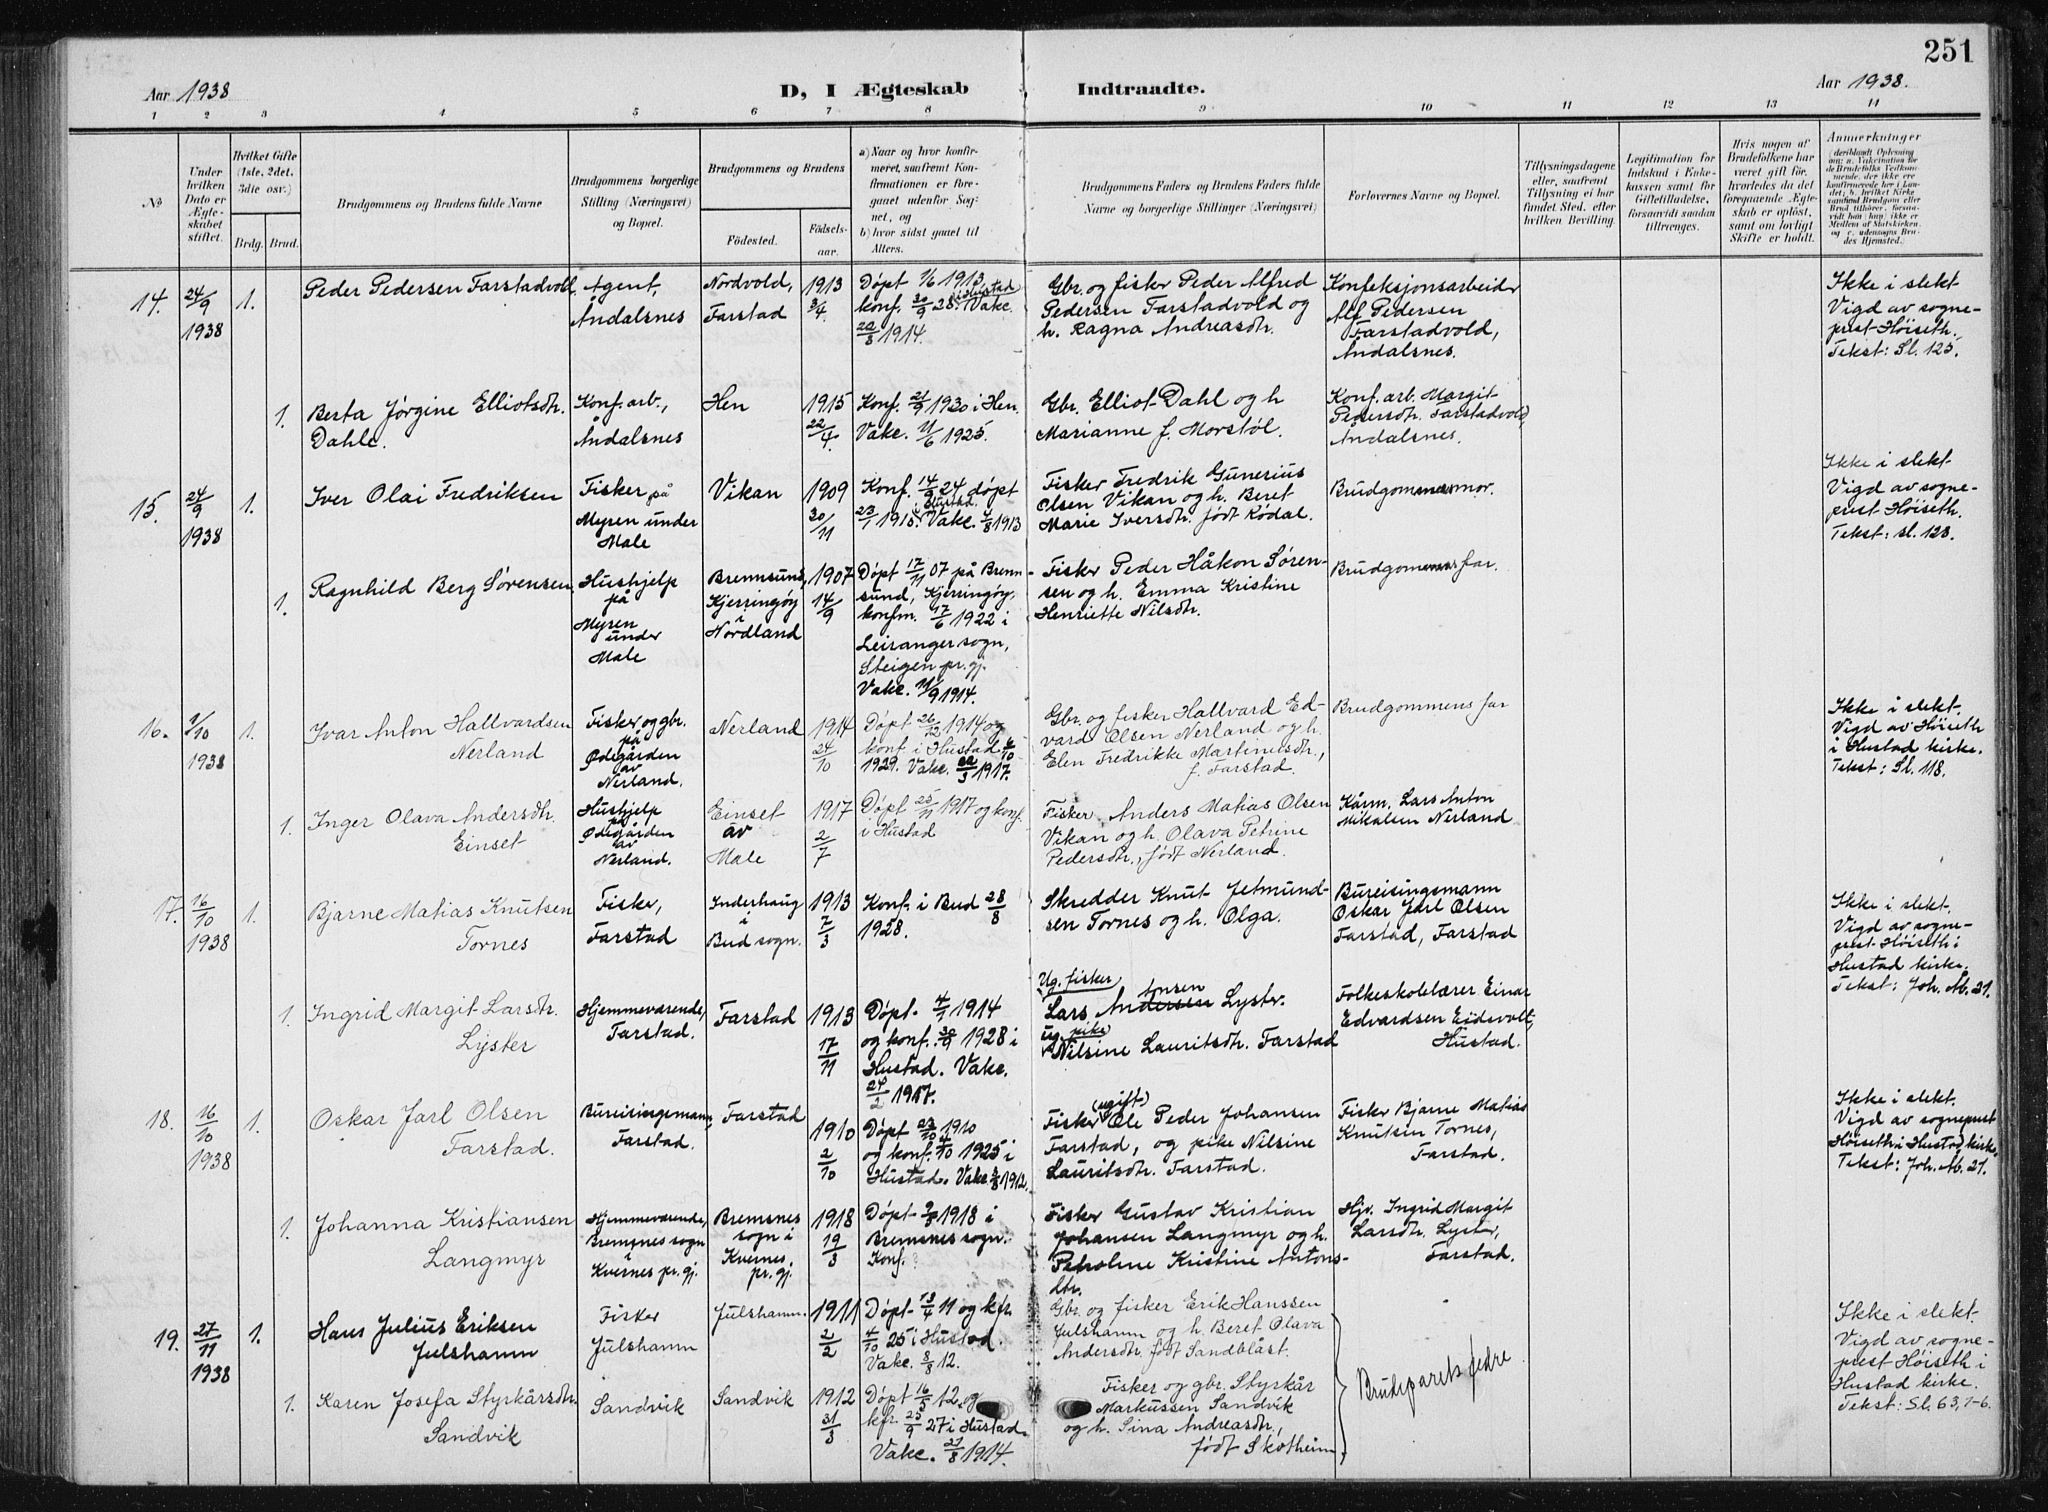 251
Aar 1938
D, I Ægteskab Indtraadte.
Aar 1938.
1 2 3 4 5 6 7 8 9 10 11 12 13 14
No
Under
hvilken
Dato er
Ægte-
skabet
stiftet.
Hvilket Gifte
(1ste, 2det,
3die osv.)
Brdg. Brud.
Brudgommens og Brudens fulde Navne
Brudgommens borgerlige
Stilling (Næringsvei)
og Bopæl.
Brudgommens og Brudens
Fødested.
Fødsels-
aar.
a) Naar og hvor konfir-
meret, saafremt Kon-
firmationen er fore-
gaaet udenfor Sog-
net, og
b) hvor sidst gaaet til
Alters.
Brudgommens Faders og Brudens Faders fulde
Navne og borgerlige Stillinger (Næringsvei)
Forlovernes Navne og Bopæl.
Tillysningsdagene
eller, saafremt
Tillysning ei har
fundet Sted, efter
hvilken Bevilling.
Legitimation for
Indskud i Enke-
kassen samt for
Giftetilladelse,
forsaavidt saadan
tiltrænges.
Hvis nogen af
Brudefolkene har
været gift før,
hvorledes da det
foregaaende Ægte-
skab er opløst,
samt om lovligt
Skifte er holdt.
Anmerkninger
(deriblandt Oplysning
om: a. Vakcination for
de Brudefolks Vedkom-
mende, der ikke ere
konfirmerede her i Lan-
det; b. hvilket Kirke
samfund Brudgom eller
Brud tilhører, forsaa-
vidt han (hun) ikke er
Medlem af Statskirken,
og c. udensogns Bru-
des Hjemsted.
14. 24/9 1938 1.
Peder Pedersen Farstadvoll
Agent,
Åndalsnes
Nordvold,
Farstad
1913
3/4
Døpt 1/6 1913
konf. 30/9 28 i Hustad. Vakc.
22/8 1914.
Gbr. og fisker Peder Alfred
Pedersen Farstadvold og
h. Ragna Andreasdtr.
Konfeksjonsarbeider
Alf Pedersen
Farstadvold,
Åndalsnes.
Ikke i slekt
Vigd av sogne-
prest Höiseth.
Tekst: Sl. 125.
1.
Berta Jørgine Elliotsdtr.
Dahle.
Konf. arb.,
Åndalsnes
Hen
1915
22/4
Konf. 21/9 1930 i Hen.
Vakc. 11/6 1925.
Gbr. Elliot Dahl og h
Marianne f. Morstøl.
Konf. arb. Margit
Pedersdtr. Farstadvold,
Åndalsnes.
15. 24/9 1938 1.
Iver Olai Fredriksen
Fisker på
Myren under
Male
Vikan
1909
30/11
Konf. 14/9 24 døpt
23/1 1910 i Hustad. Vakc. 4/8 1913
Fisker Fredrik Gunerius
Olsen Vikan og h. Beret
Marie Iversdtr. født Rødal.
Brudgommens mor.
Ikke i slekt
Vigd av sogne-
prest Höiseth.
Tekst: sl. 123.
1.
Ragnhild Berg Sørensen
Hushjelp
på
Myren
under
Male
Brennsund,
Kjerringøy
i
Nordland
1907
14/9
Døpt 17/11 07 på Brenn-
sund, Kjerringøy,
konfm. 17/6 1922 i
Leiranger sogn,
Steigen pr. gj.
Vakc. 11/9 1914.
Fisker Peder Håkon Søren-
sen og h. Emma Kristine
Henriette Nilsdtr.
Brudgommens far.
16. 1/10 1938 1.
Ivar Anton Hallvardsen
Nerland
Fisker og gbr.
på
Ødegården
av
Nerland.
Nerland
1914
24/10
Døpt 26/12 1914 og
konf. i Hustad 6/10
1929. Vakc. 22/5 1917.
Gbr. og fisker Hallvard Ed-
vard Olsen Nerland og h.
Elen Fredrikke Martinusdtr.,
f. Farstad.
Brudgommens far
Ikke i slekt.
Vigd av Höiseth
i Hustad kirke.
Tekst: Sl. 118.
1.
Inger Olava Andersdtr.
Einset
Hushjelp
på
Ødegården
av
Nerland.
Einset
av
Male
1917
2/7
Døpt 25/11 1917 og konf.
i Hustad
Fisker Anders Matias Olsen
Vikan og h. Olava Petrine
Pedersdtr., født Nerland.
Kårm. Lars Anton
Mikalsen Nerland
17. 16/10 1938 1.
Bjarne Matias Knutsen
Tornes
Fisker,
Farstad
Inderhaug
i
Bud sogn.
1913
7/3
Konf. i Bud 28/8
1928.
Skredder Knut Jetmund-
sen Tornes og h. Olga.
Bureisingsmann
Oskar Jarl Olsen
Farstad, Farstad
Ikke i slekt.
Vigd av sogne-
prest Höiseth i
Hustad kirke.
Tekst: Joh. Åb. 21.
1.
Ingrid Margit Larsdtr.
Lyster
Hjemmeværende,
Farstad.
Farstad
1913
17/11
Døpt 4/1 1914
og konf. 30/9 1928 i
Hustad. Vakc.
24/2 1917.
Ug. fisker
Lars Andersen Lyster.
ug. pike
Nilsine Lauritsdtr. Farstad
Folkeskolelærer Einar
Edvardsen Eidsvolt,
Hustad.
18. 16/10 1938 1.
Oskar Jarl Olsen
Farstad.
Bureisingsmann,
Farstad.
Farstad
1910
2/10
Døpt 23/10 1910
og konf. 4/10 1925 i
Hustad. Vakc. 3/8 1912.
(ugift)
Fisker Ole Peder Johansen
Farstad, og pike Nilsine
Lauritsdtr. Farstad.
Fisker Bjarne Matias
Knutsen Tornes,
Farstad.
Ikke i slekt.
Vigd av sogneprest
Höiseth i Hustad kirke.
Tekst: Joh. Åb. 21.
1.
Johanna Kristiansen
Langmyr
Hjemmeværende,
Bremsnes sogn
i
Kvernes pr. gj.
Bremsnes
sogn i
Kvernes
pr. gj.
1918
19/3
Døpt 1918 i
Bremsnes sogn.
Konf.?
Fisker Gustav Kristian
Johansen Langmyr og h.
Petroline Kristine Antons-
dtr.
Hjv. Ingrid Margit
Larsdtr. Lyster,
Farstad.
19. 27/11 1938 1.
Hans Julius Eriksen
Julshamn
Fisker
Julshamn
Julshamn.
1911
2/2
Døpt 13/4 11 og kfr.
4/10 25 i Hustad.
Vakc. 8/8 12.
Gbr. og fisker Erik Hanssen
Julshamn og h. Beret Olava
Andersdtr. født Sandblåst.
Brudeparets fedre
Ikke i slekt.
Vigd av sogne-
prest Höiseth i
Hustad kirke.
Tekst: Sl. 63,1-6.
1.
Karen Josefa Styrkårsdtr.
Sandvik
Sandvik
Sandvik
1912
31/3
Døpt 16/5 12 og
kfr. 25/9 27 i Hustad.
Vakc. 21/8 1914.
Fisker og gbr. Styrkår
Markussen Sandvik
og h. Sina Andreasdtr.,
født Skotheim